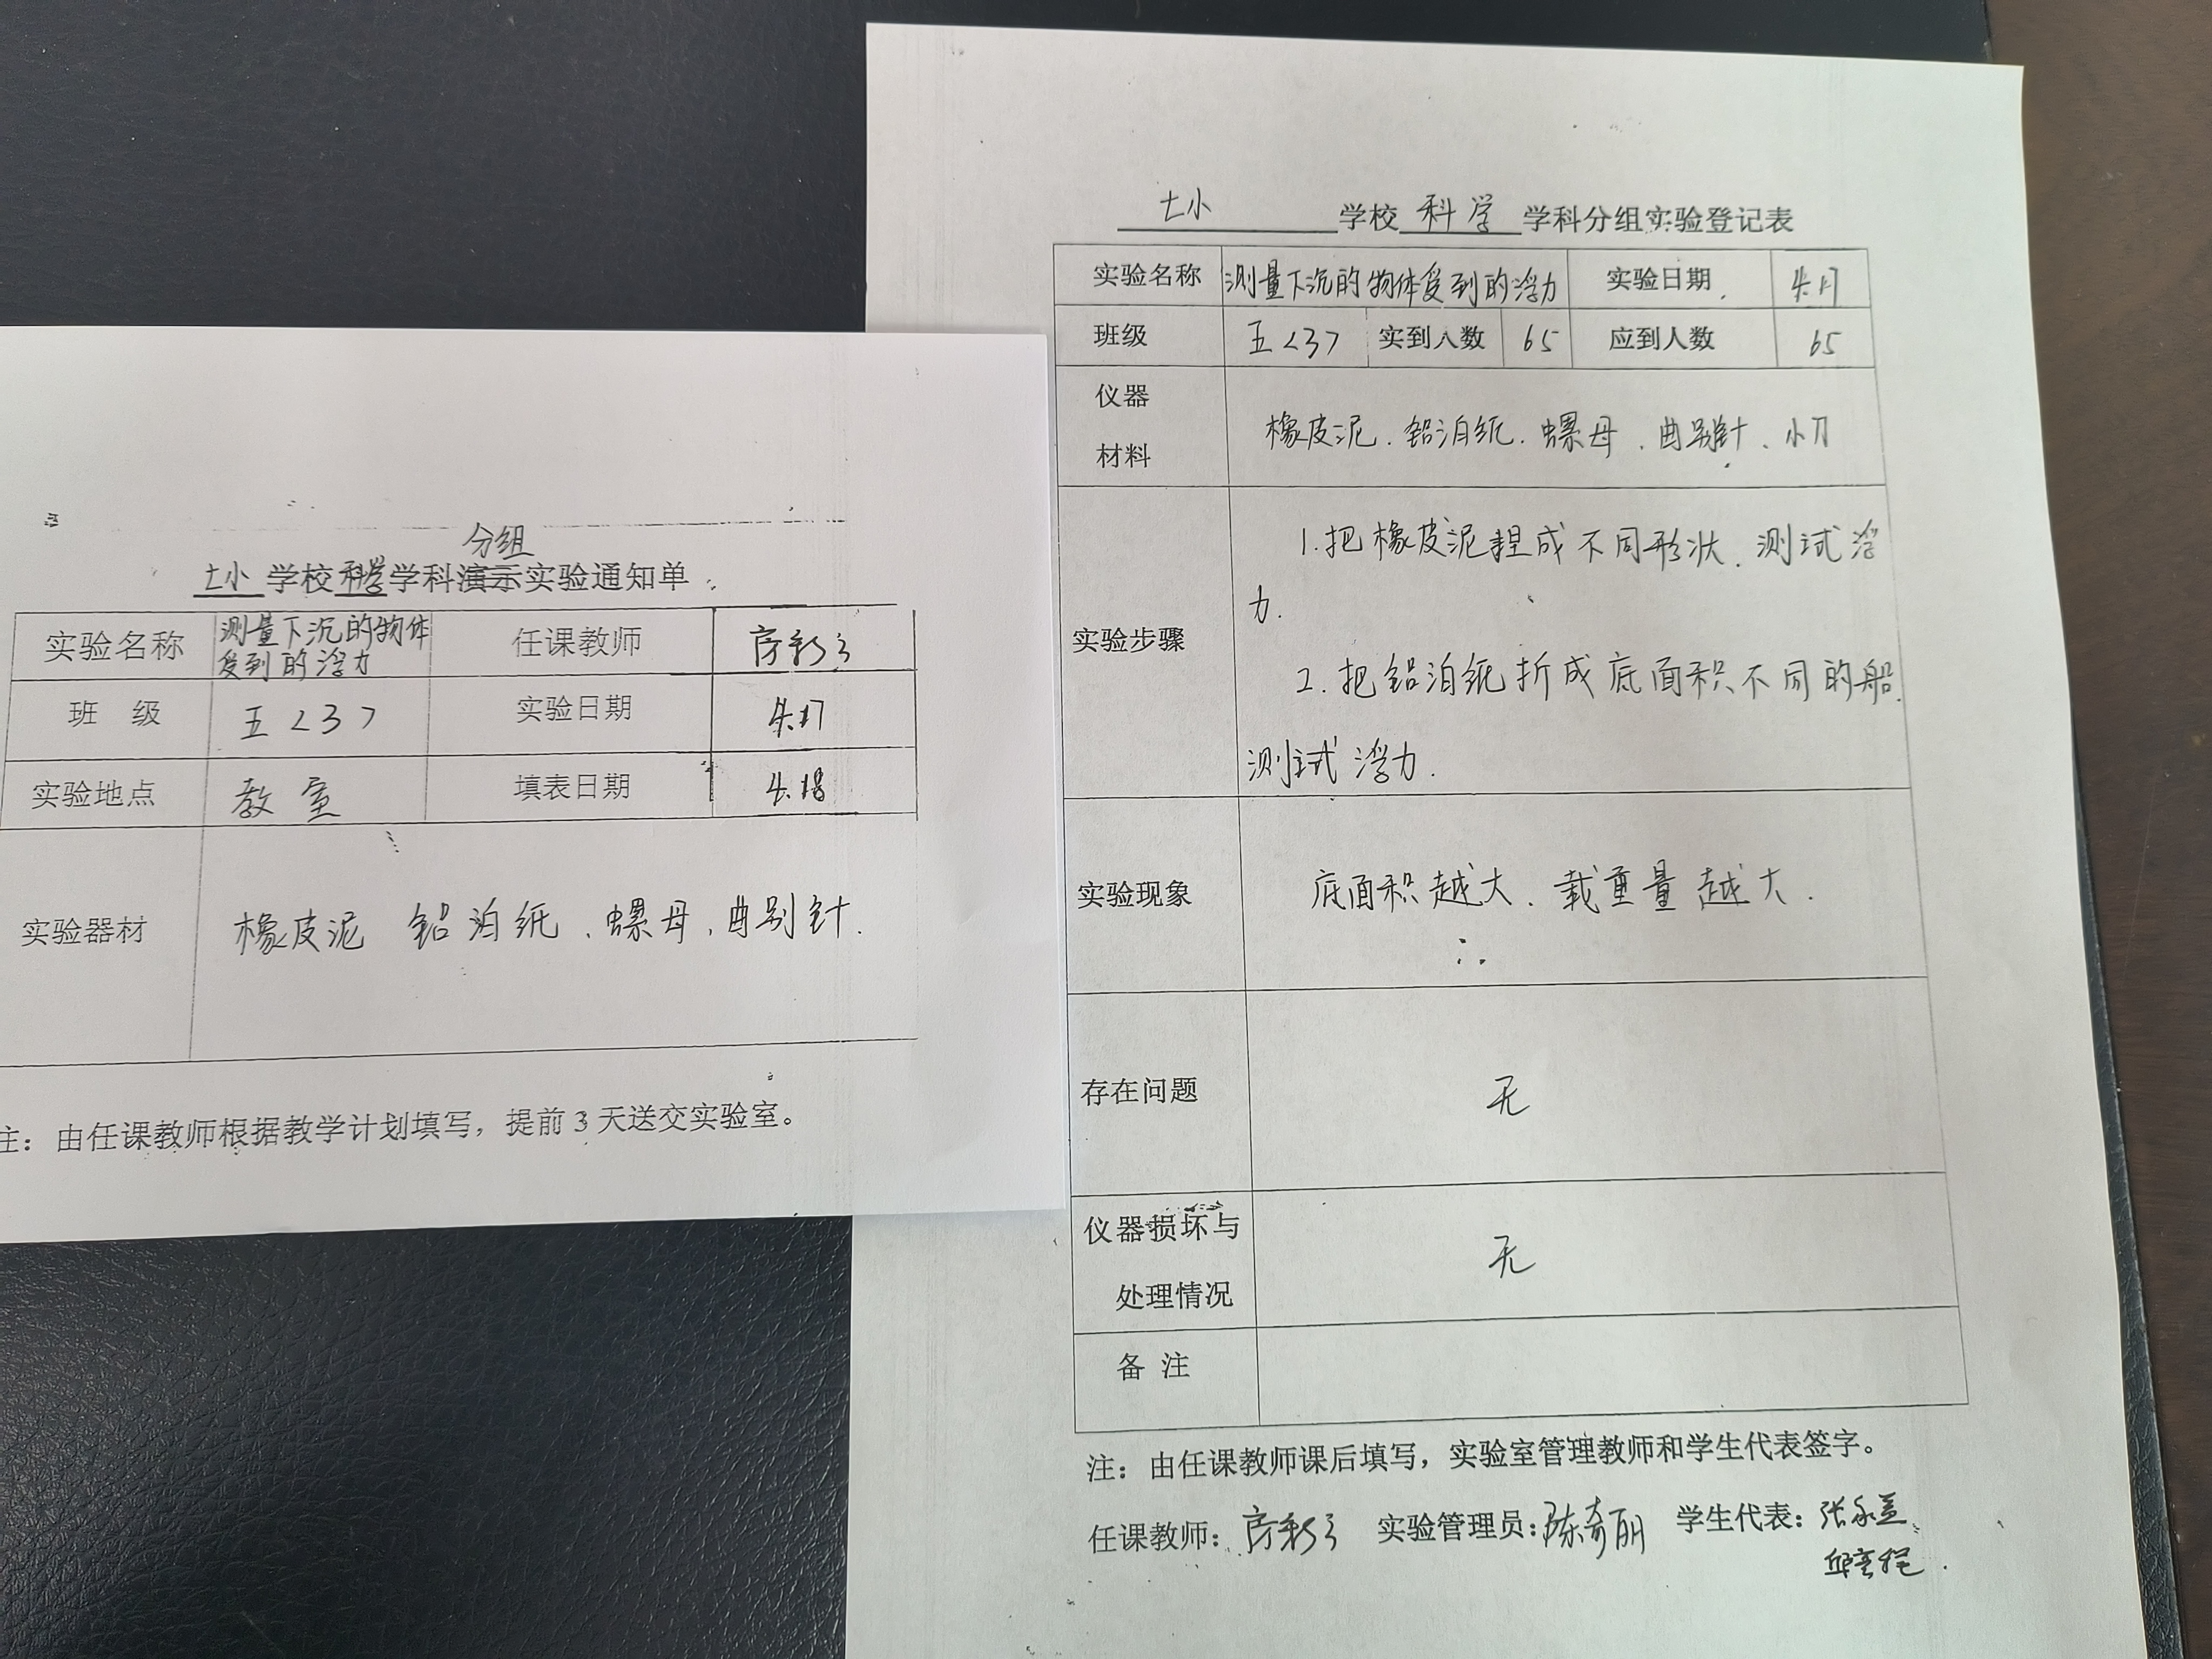 分组
七小 学校 科学 学科演示实验通知单
实验名称 测量下沉的物体受到的浮力 任课教师
班 级 五<3> 实验日期 4.17
实验地点 教室 填表日期 4.18
实验器材 橡皮泥 铝泊纸、螺母、曲别针.
注：由任课教师根据教学计划填写，提前 3 天送交实验室。
七小 学校 科学 学科分组实验登记表
实验名称 测量下沉的物体受到的浮力 实验日期 4.17
班级 五<3> 实到人数 65 应到人数 65
仪器
材料
橡皮泥、铝泊纸、螺母、曲别针、小刀
实验步骤
1.把橡皮泥捏成不同形状、测试浮
力.
2.把铝泊纸折成底面积不同的船.
测试浮力.
实验现象 底面积越大、载重量越大.
存在问题 无
仪器损坏与
处理情况
无
备 注
注：由任课教师课后填写，实验室管理教师和学生代表签字。
任课教师： 实验管理员：陈奇丽 学生代表：